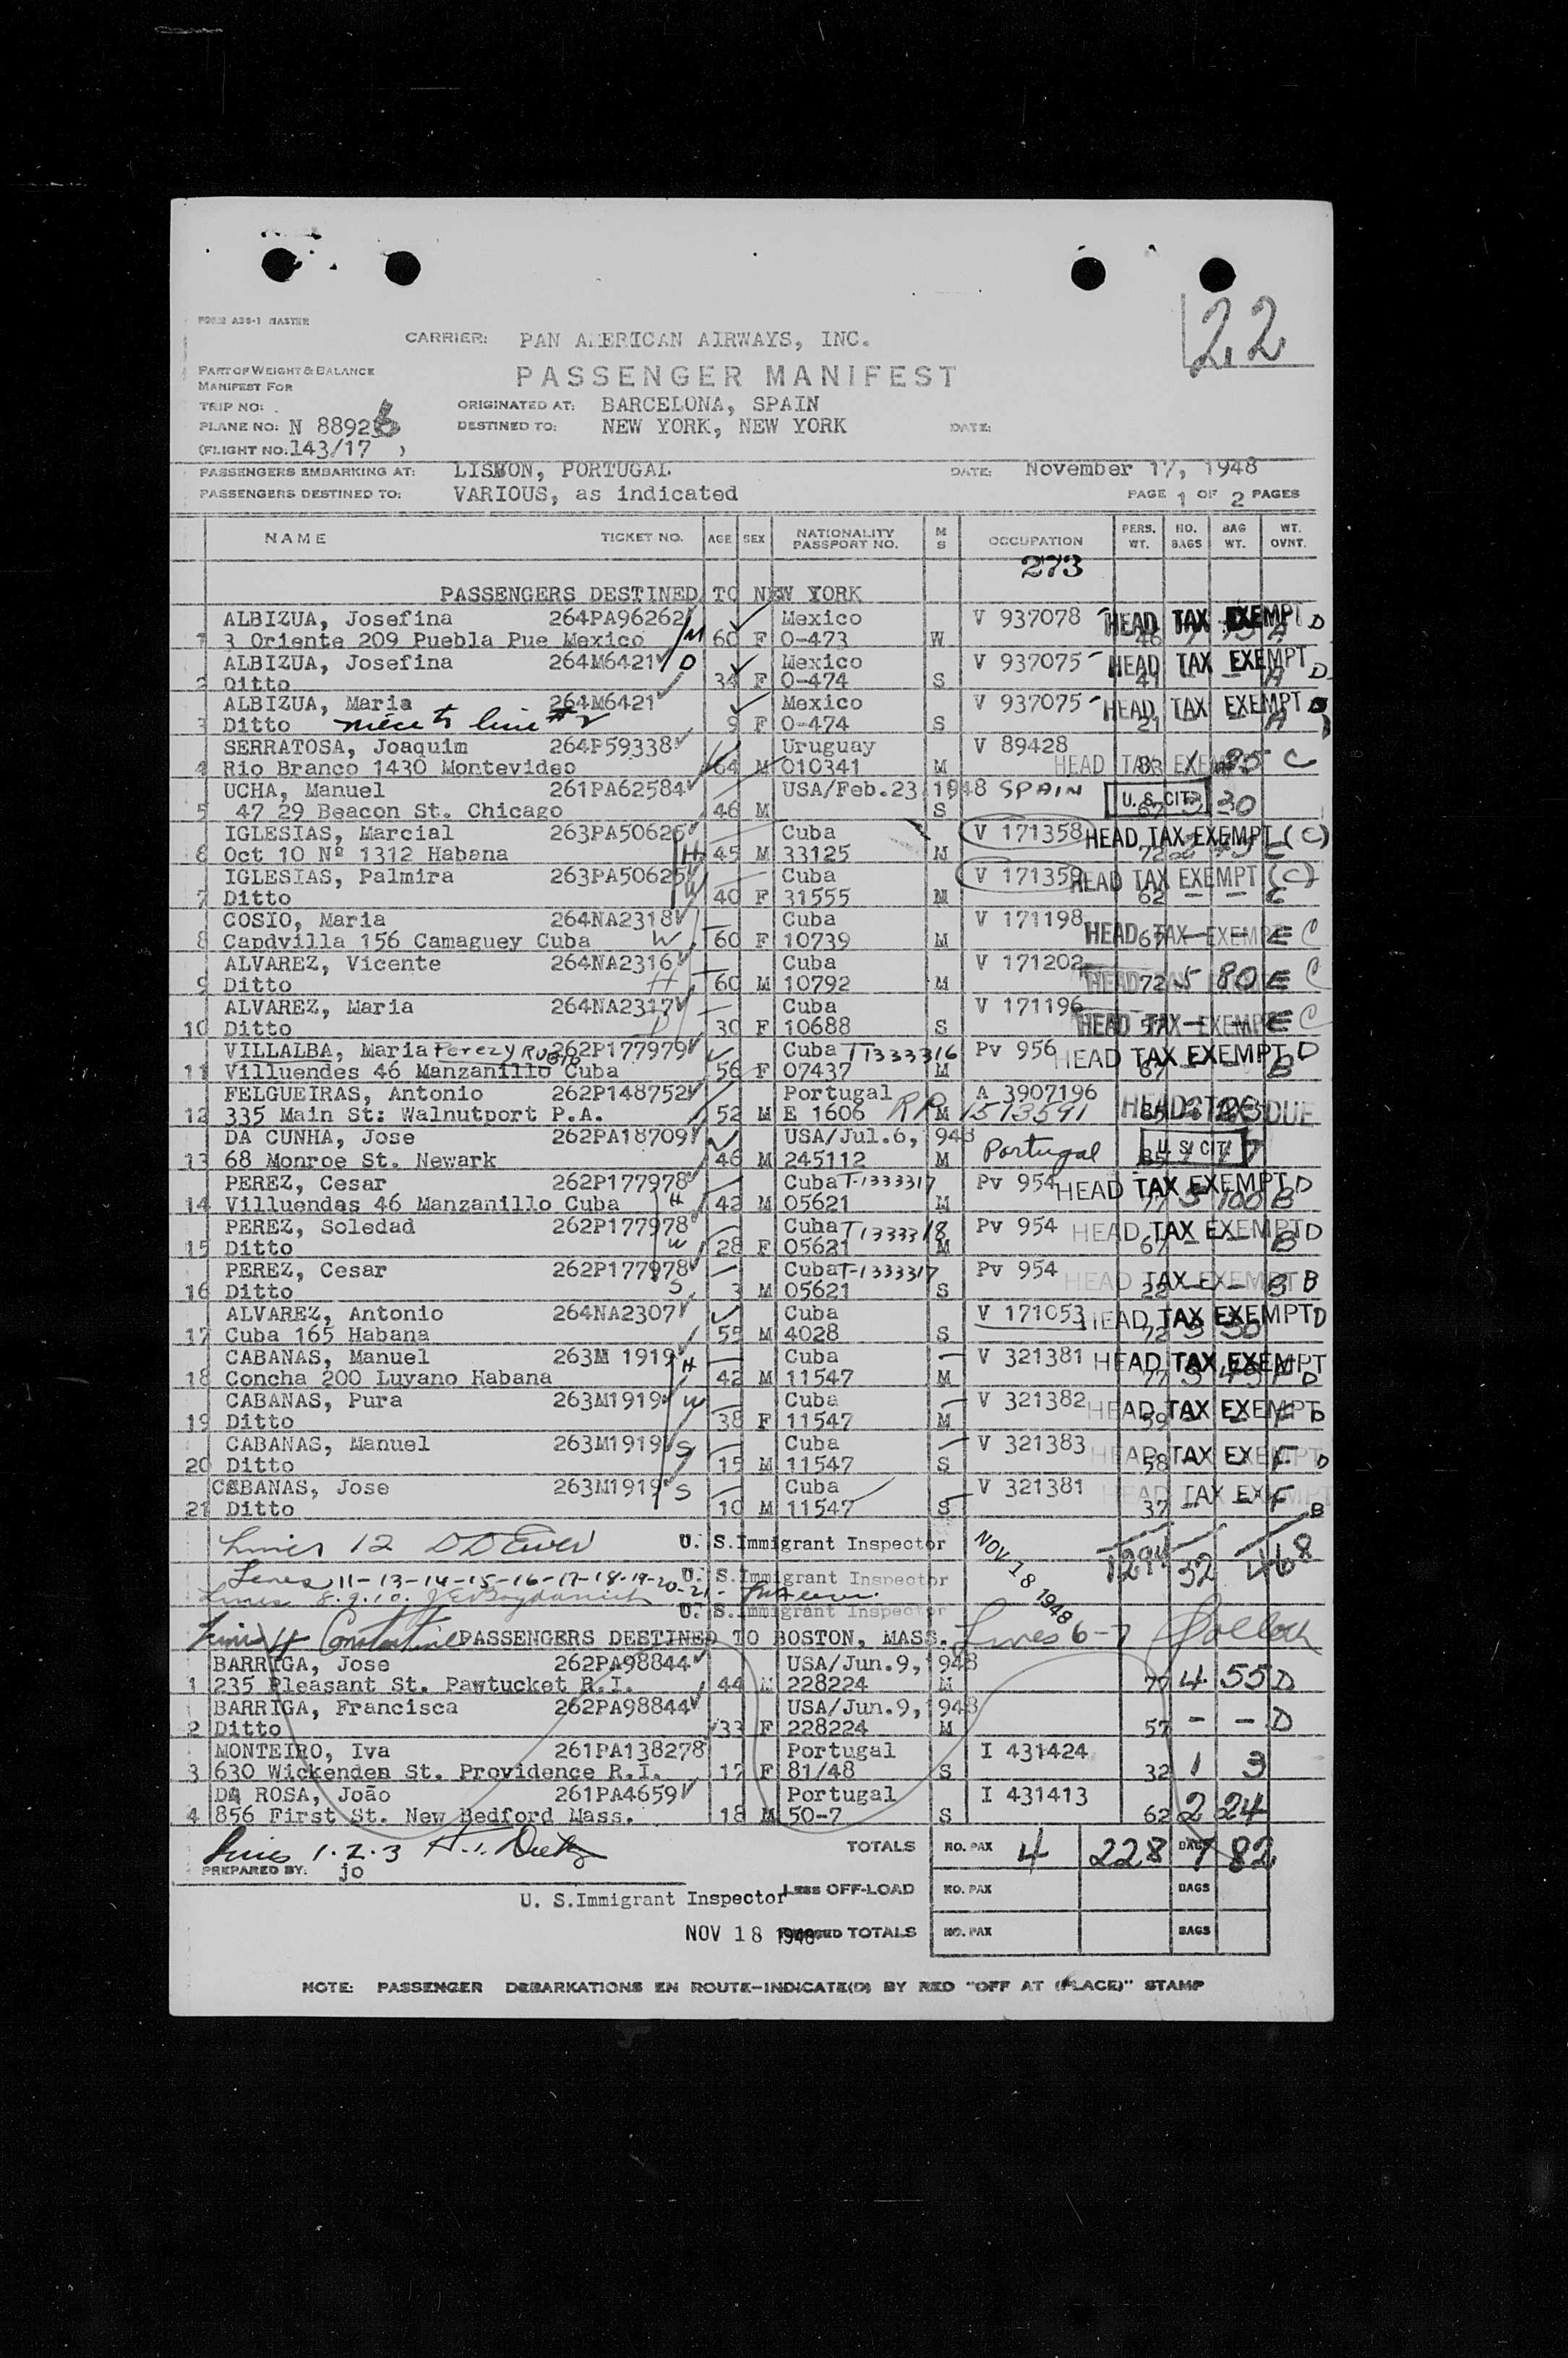 22
FORM A26-1 MASTER
CARRIER: PAN AMERICAN AIRWAYS, INC.
PART OF WEIGHT & BALANCE
MANIFEST FOR
PASSENGER MANIFEST
TRIP NO: ORIGINATED AT: BARCELONA, SPAIN
PLANE NO: N 88926 DESTINED TO: NEW YORK, NEW YORK DATE:
(FLIGHT NO: 143/17 )
PASSENGERS EMBARKING AT: LISBON, PORTUGAL DATE: November 17, 1948
PASSENGERS DESTINED TO: VARIOUS, as indicated PAGE 1 OF 2 PAGES
NAME TICKET NO. AGE SEX NATIONALITY PASSPORT NO. M S OCCUPATION PERS. WT. NO. BAGS BAG WT. WT. OVNT.
273
PASSENGERS DESTINED TO NEW YORK
ALBIZUA, Josefina 264PA96262 Mexico V 937078 HEAD TAX EXEMPT D
1 3 Oriente 209 Puebla Pue Mexico M 60 F 0-473 W 46 A
ALBIZUA, Josefina 264M6421 D Mexico V 937075 HEAD TAX EXEMPT
2 Ditto 34 F 0-474 S 41 - - A D
ALBIZUA, Maria 264M6421 Mexico V 937075 HEAD TAX EXEMPT
3 Ditto niece to line #2 9 F 0-474 S 21 - - A
SERRATOSA, Joaquim 264P59338 Uruguay V 89428
4 Rio Branco 1430 Montevideo 64 M 010341 M HEAD TAX EXEMPT C
UCHA, Manuel 261PA62584 USA/Feb.23,1948 SPAIN U.S. CIT
5 47 29 Beacon St. Chicago 46 M S 67 3 30
IGLESIAS, Marcial 263PA50625 Cuba V 171358 HEAD TAX EXEMPT (C)
6 Oct 10 Nº 1312 Habana H 45 M 33125 M 72
IGLESIAS, Palmira 263PA50625 Cuba V 171359 HEAD TAX EXEMPT (C)
7 Ditto W 40 F 31555 M 62 - - E
COSIO, Maria 264NA2318 Cuba V 171198
8 Capdvilla 156 Camaguey Cuba W 60 F 10739 M HEAD TAX EXEMPT 67 - - E C
ALVAREZ, Vicente 264NA2316 Cuba V 171202
9 Ditto H 60 M 10792 M HEAD 72 5 80 E C
ALVAREZ, Maria 264NA2317 Cuba V 171196
10 Ditto D 30 F 10688 S HEAD TAX EXEMPT E C
VILLALBA, Maria Perez y Rubio 262P177979 Cuba T1333316 Pv 956 HEAD TAX EXEMPT D
11 Villuendes 46 Manzanillo Cuba 56 F 07437 M 67 - - B
FELGUEIRAS, Antonio 262P148752 Portugal A 3907196
12 335 Main St: Walnutport P.A. 52 M E 1606 RP M 1513591 HEAD TAX DUE
DA CUNHA, Jose 262PA18709 USA/Jul.6, 1948 Portugal U S CIT
13 68 Monroe St. Newark 46 M 245112 M
PEREZ, Cesar 262P177978 Cuba T-1333317 Pv 954 HEAD TAX EXEMPT D
14 Villuendas 46 Manzanillo Cuba H 42 M 05621 M 77 5 100 B
PEREZ, Soledad 262P177978 Cuba T1333318 Pv 954 HEAD TAX EXEMPT D
15 Ditto W 28 F 05621 M 67 - - B
PEREZ, Cesar 262P177978 Cuba T-1333317 Pv 954
16 Ditto S 3 M 05621 S HEAD TAX EXEMPT 22 - - B B
ALVAREZ, Antonio 264NA2307 Cuba V 171053 HEAD TAX EXEMPT D
17 Cuba 165 Habana 55 M 4028 S 72 3 50
CABANAS, Manuel 263M 1919 H Cuba V 321381 HEAD TAX EXEMPT
18 Concha 200 Luyano Habana 42 M 11547 M 77 D
CABANAS, Pura 263M1919 W Cuba V 321382 HEAD TAX EXEMPT
19 Ditto 38 F 11547 M 59 - - F D
CABANAS, Manuel 263M1919 S Cuba V 321383 HEAD TAX EXEMPT
20 Ditto 15 M 11547 S 58 - - F D
CABANAS, Jose 263M1919 S Cuba V 321381 HEAD TAX EXEMPT
21 Ditto 10 M 11547 S 37 - - F B
Lines 12 U. S.Immigrant Inspector NOV 18 1948 1294 32 468
Lines 11-13-14-15-16-17-18-19-20-21- U. S.Immigrant Inspector
Lines 8.9.10. U. S.Immigrant Inspector
Lines 4 Constantine PASSENGERS DESTINED TO BOSTON, MASS. Lines 6-7 Pollock
BARRIGA, Jose 262PA98844 USA/Jun.9,1948
1 235 Pleasant St. Pawtucket R.I. 44 M 228224 M 77 4 55 D
BARRIGA, Francisca 262PA98844 USA/Jun.9,1948
2 Ditto 33 F 228224 M 57 - - D
MONTEIRO, Iva 261PA138278 Portugal I 431424
3 630 Wickenden St. Providence R.I. 17 F 81/48 S 32 1 3
DA ROSA, João 261PA4659 Portugal I 431413
4 856 First St. New Bedford Mass. 18 M 50-7 S 62 2 24
Lines 1.2.3 TOTALS NO. PAX 4 228 BAGS 7 82
PREPARED BY: jo
U. S.Immigrant Inspector LESS OFF-LOAD NO. PAX BAGS
NOV 18 1948 TOTALS NO. PAX BAGS
NOTE: PASSENGER DEBARKATIONS EN ROUTE-INDICATE(D) BY RED "OFF AT (PLACE)" STAMP